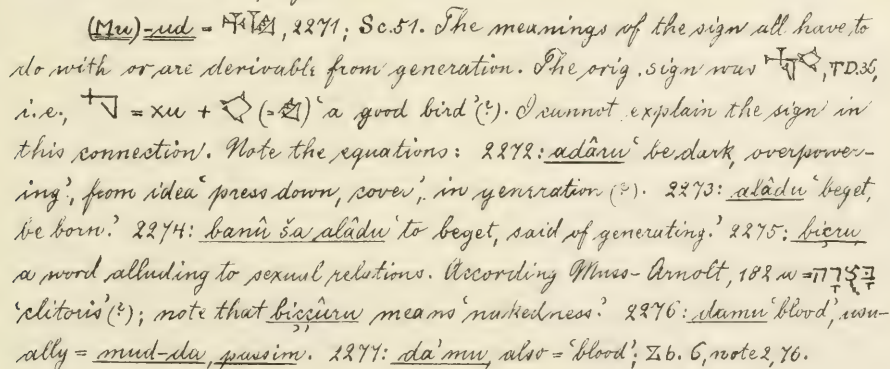 (Mu)-ud = 𒄷𒄭, 2271; Sc. 51. The meanings of the sign all have to
do with or are derivable from generation. The orig. sign was , TD. 36,
i. e., = xu + (= ) 'a good bird' (?). I cannot explain the sign in
this connection. Note the equations: 2272: adâru 'be dark, overpower-
ing', from idea 'press down, cover', in generation (?). 2273: alâdu 'beget,
be born.' 2274: banû ša alâdu 'to beget, said of generating.' 2275: biçru
a word alluding to sexual relations. According Muss-Arnolt, 182 =
'clitoris' (?); note that biççûru means 'nakedness.' 2276: damu 'blood', usu-
ally = mud-da, passim. 2277: da'mu, also = 'blood'; Zb. 6, note 2, 76.